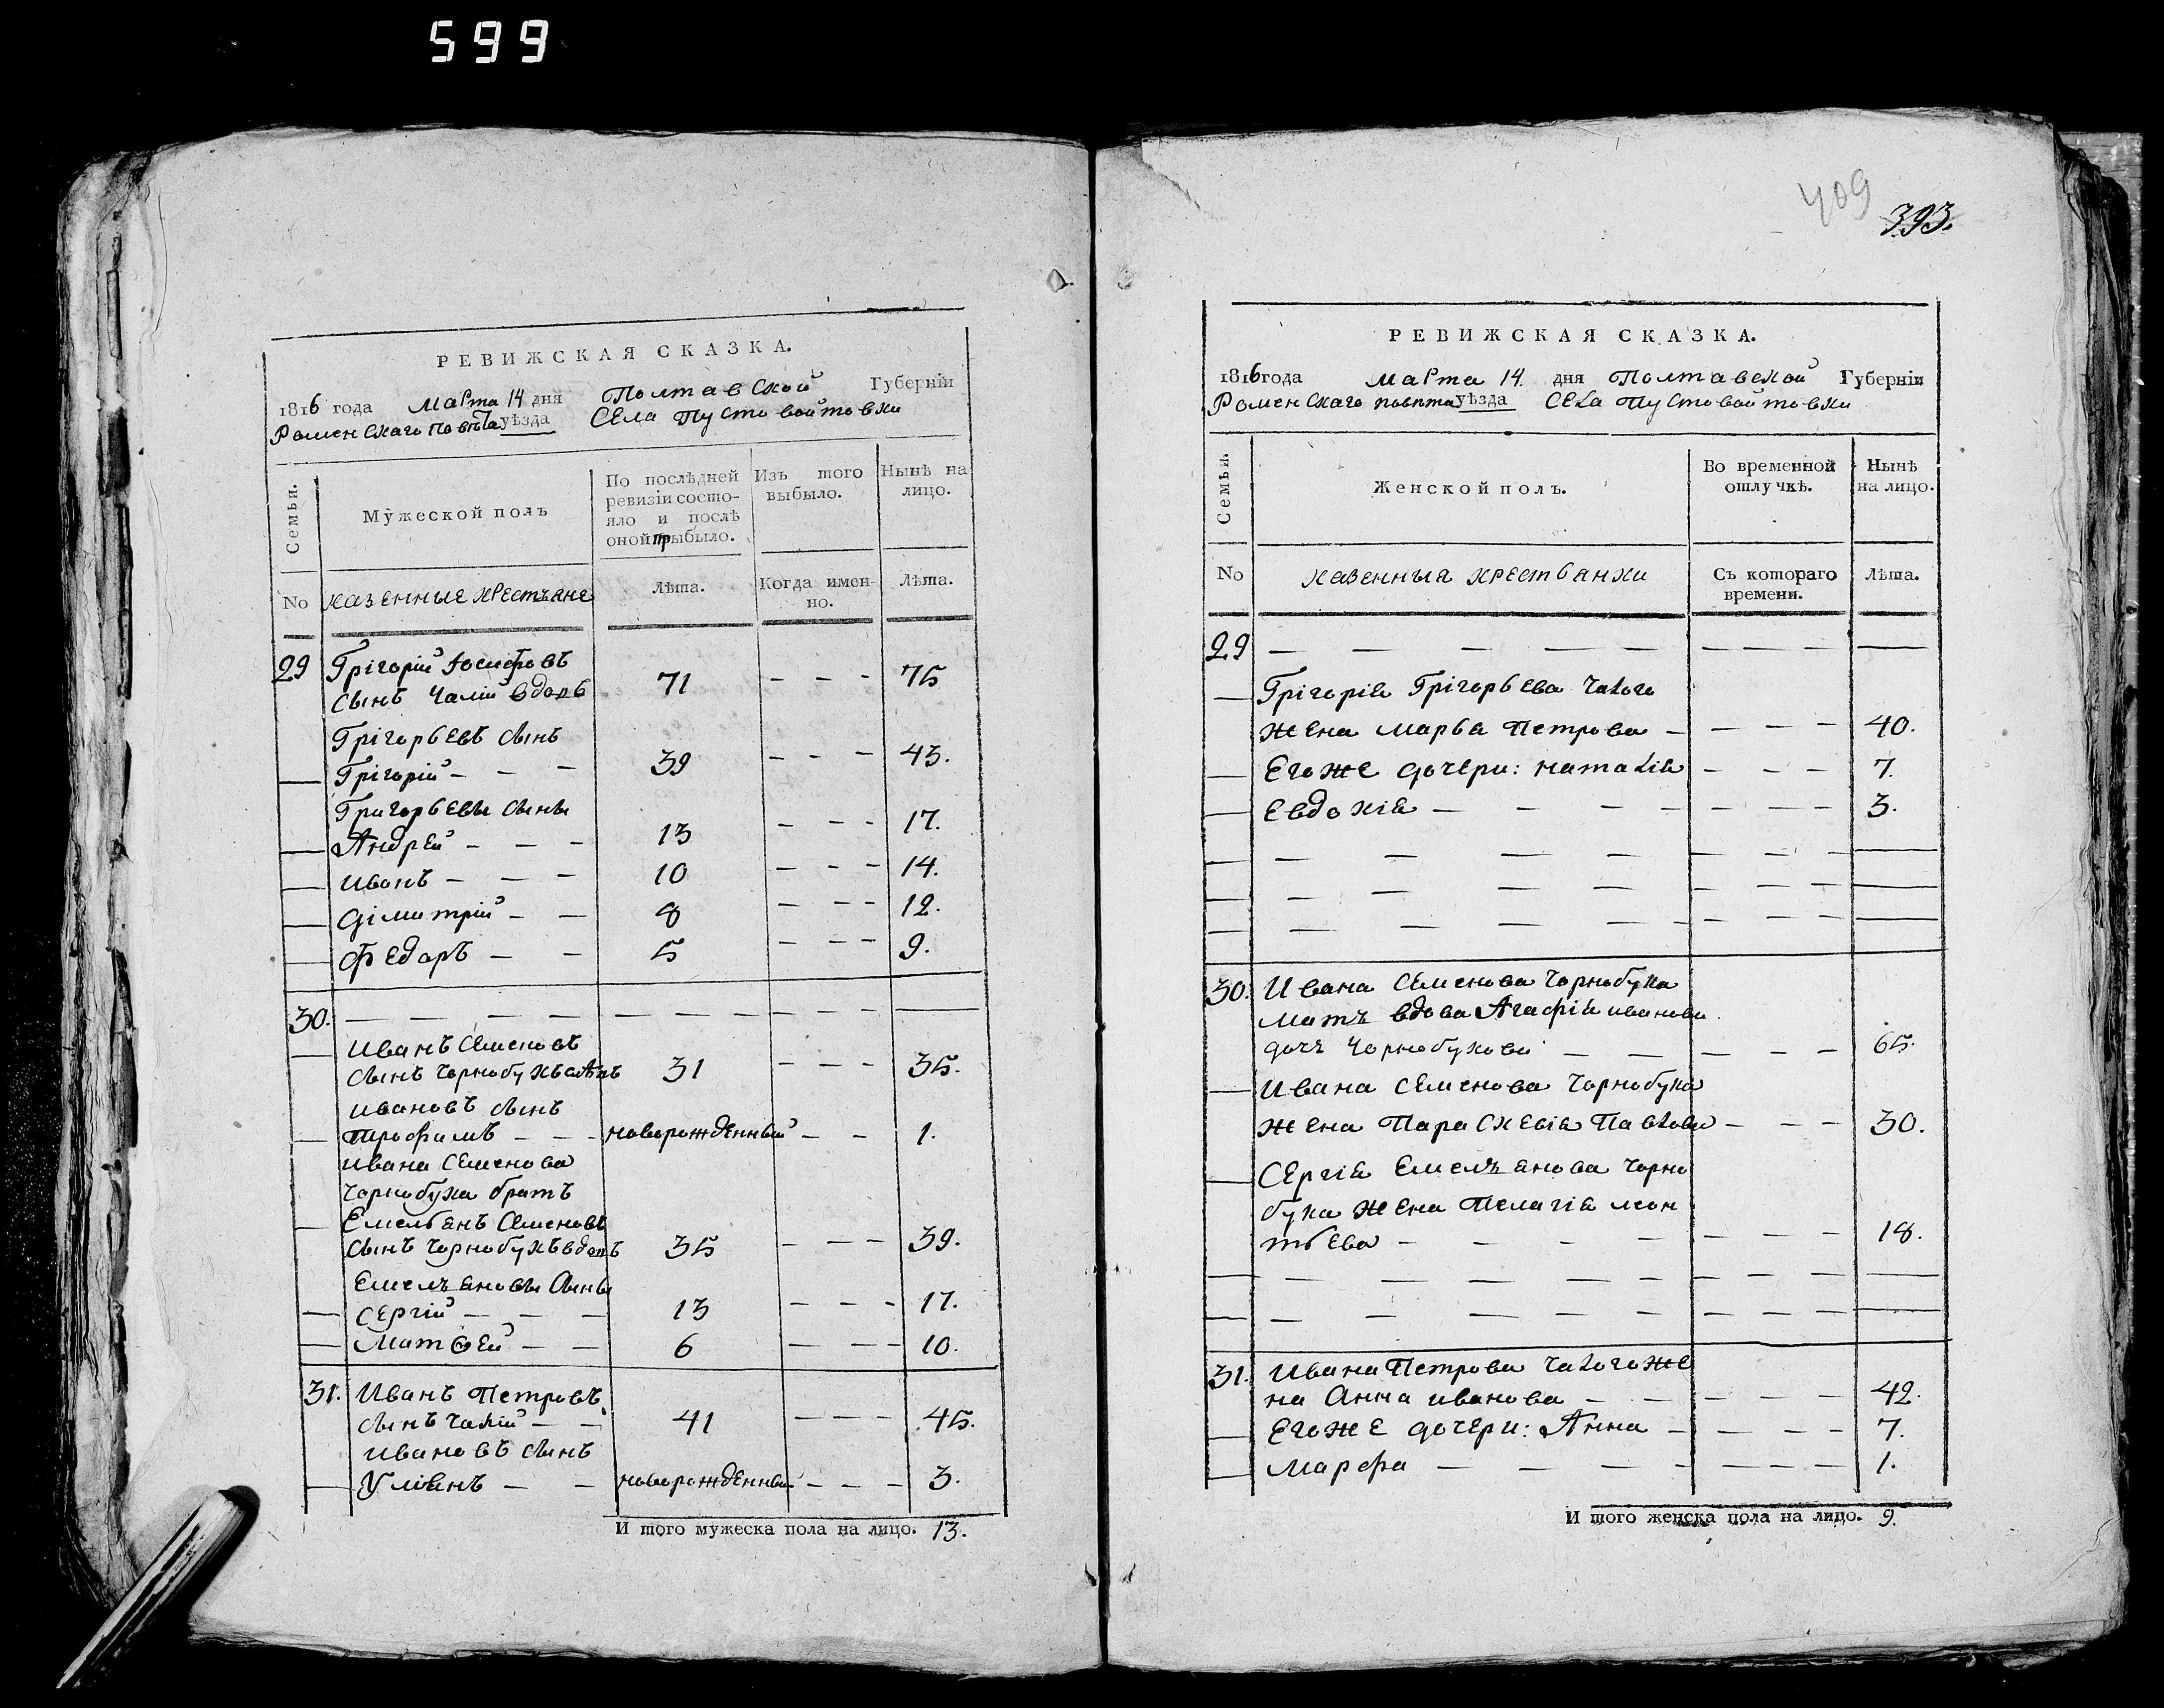 599
РЕВИЖСКАЯ СКАЗКА.
1816 года Марта 14 дня Полтавской Губерніи
Роменскаго повѣта уѣзда Села Пустовойтовки
Семьи.
Мужеской полъ
По послѣдней ревизіи состояло и послѣ оной прибыло.
Изъ того выбыло.
Нынѣ на лицо.
No казенные крестъяне Лѣта. Когда именно. Лѣта.
29 Грігорій Іосифовъ
сынъ Чалій вдовъ 71 — — — 75
Грігорьевъ сынъ
— Грігорій — — — 39 — — — 43.
Григорьевы сыны
— Андрей — — — 13 — — — 17.
— Иванъ — — — 10 — — — 14.
— Дімитрій — — 8 — — — 12.
— Федоръ — — 5 — — — 9.
30. — — — — — — — — — — — —
— Иванъ Семеновъ
сынъ Чорнобукъ 31 — — — 35.
Ивановъ сынъ
— Трофимъ — — — новорожденный — — 1.
Ивана Семенова
Чорнобука братъ
— Емельянъ Семеновъ
сынъ Чорнобукъ вдовъ 35 — — — 39.
Емелъяновы сыны
— Сергій — — — 13 — — — 17.
— Матѳей — — 6 — — — 10.
31. Иванъ Петровъ
сынъ Чалій — — 41 — — — 45.
Ивановъ сынъ
— Уліянъ — — новорожденный — — — 3.
И того мужеска пола на лицо. 13.
409
393.
РЕВИЖСКАЯ СКАЗКА.
1816 года Марта 14. дня Полтавской Губерніи
Роменскаго повѣта уѣзда Села Пустовойтовки
Семьи.
Женской полъ.
Во временной отлучкѣ.
Нынѣ на лицо.
No казенныя крестьянки Съ котораго времени. Лѣта.
29 — — — — — — — — — —
— Грігорія Грігорьева Чалого
жена Марья Петрова — — — — 40.
— Егоже дочери: Наталія — — — 7.
— Евдокія — — — — — — — 3.
30. Ивана Семенова Чорнобука
мать вдова Агафія Иванова
дочь Чорнобукова — — — — — 65.
— Ивана Семенова Чорнобука
жена Параскевія Павлова — — — 30.
— Сергія Емелъянова Чорно
бука жена Пелагія Леон
тьева — — — — — — — 18.
31. Ивана Петрова Чалого же
на Анна Иванова — — — — — 42.
— Егоже дочери: Анна — — — — 7.
— Марфа — — — — — — — 1.
И того женска пола на лицо. 9.